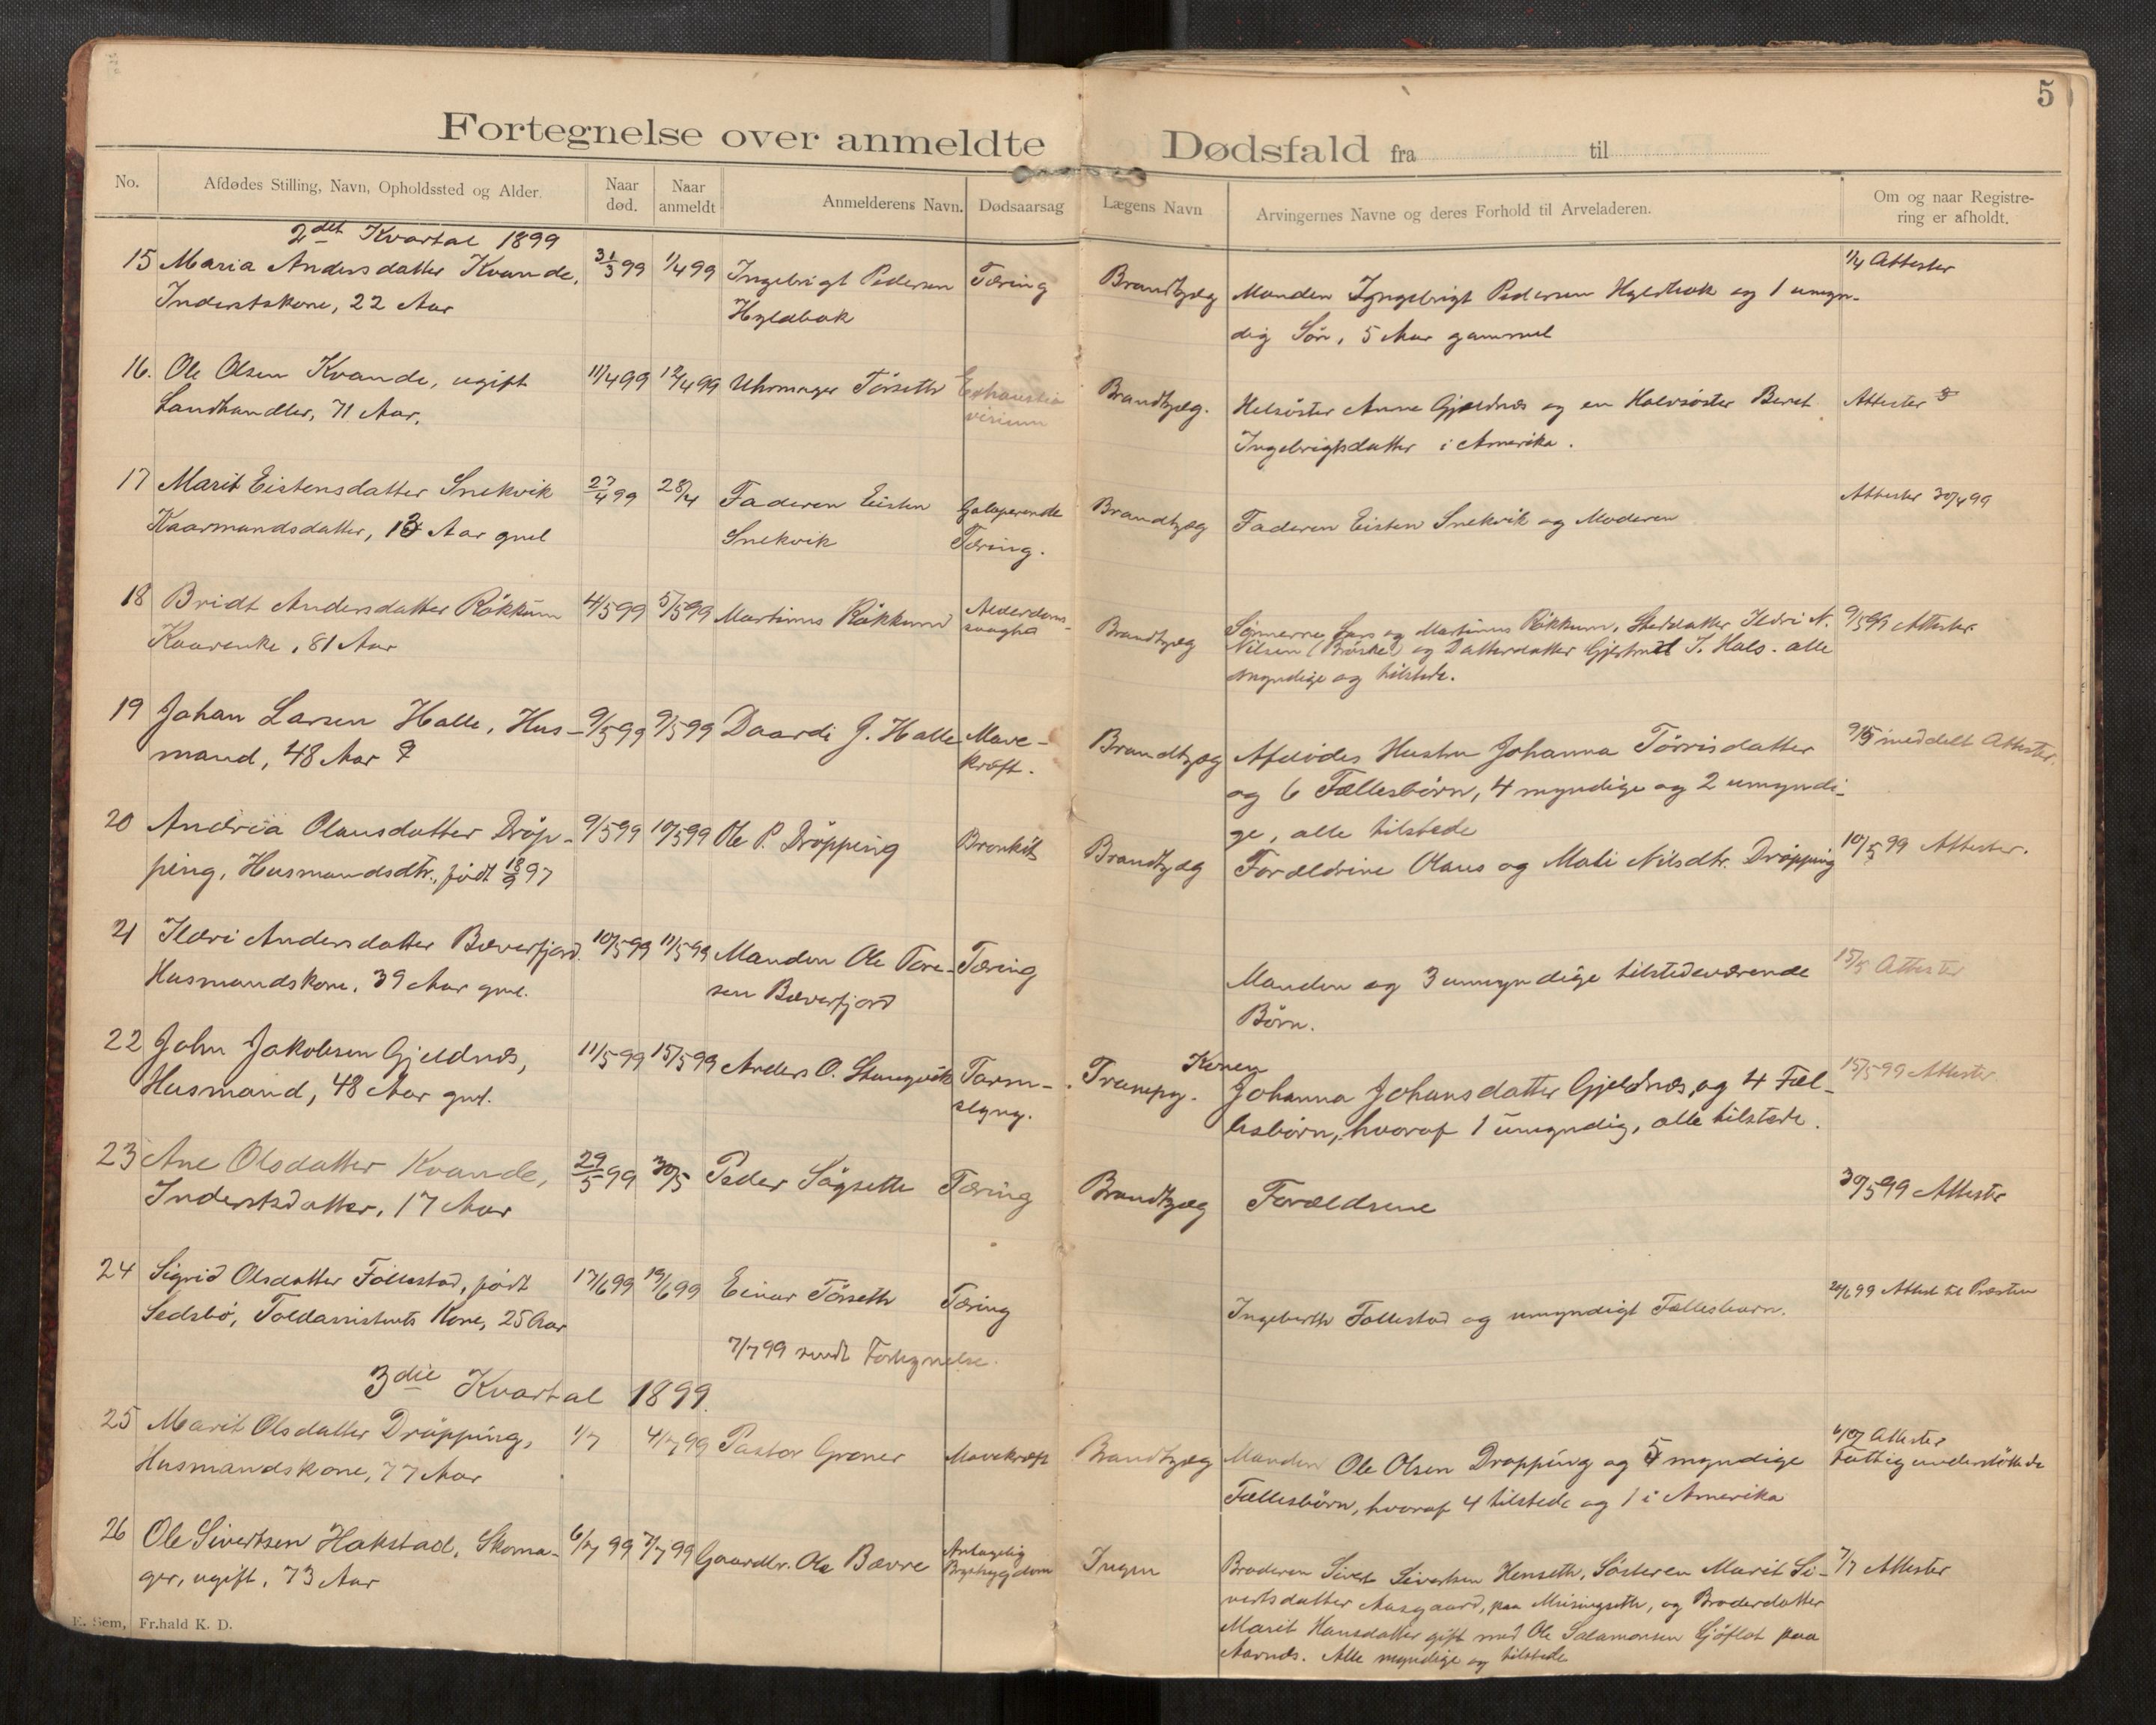 5
Fortegnelse over anmeldte Dødsfald fra til
No.
Afdødes Stilling, Navn, Opholdssted og Alder.
Naar død.
Naar anmeldt
Anmelderens Navn.
Dødsaarsag
Lægens Navn
Arvingernes Navne og deres Forhold til Arveladeren.
Om og naar Registrering er afholdt.
2det Kvartal 1899
15 Maria Andersdatter Kvande, 31/3 99 1/4 99 Ingebrigt Pedersen Tæring Brandtzæg Manden Ingebrigt Pedersen Hyldbak og 1 umyn- 1/4 Attester
Inderstskone, 22 Aar Hyldbak dig Søn, 5 Aar gammel
16. Ole Olsen Kvande, ugift 11/4 99 12/4 99 Uhrmager Törseth Exhaustio Brandtzæg. Helsöster Anne Gjeldnæs og en Halvsöster Beret Attester
Landhandler, 71 Aar, virium Ingebrigtsdatter i Amerika.
17 Marit Eistensdatter Snekvik 27/4 99 28/4 Faderen Eisten Galoperende Brandtzæg Faderen Eisten Snekvik og Moderen Attester 30/4 99
Kaarmandsdatter, 13 Aar gml Snekvik Tæring.
18 Bridt Andersdatter Rökkum 4/5 99 5/5 99 Martinus Rökkum Alderdoms- Brandtzæg Sönnerne Lars og Martinus Rökkum, Steddatter Ildri N. 9/5 99 Attester
Kaarenke, 81 Aar svaghed Nilsen (Bröske) og Datterdatter Gjertrud J. Hals. alle
myndige og tilstede.
19 Johan Larsen Halle, Hus- 9/5 99 9/5 99 Daardi J. Halle Mave- Brandtzæg Afdödes Hustru Johanna Törrisdatter 9/5 meddelt Attester.
mand, 48 Aar kræft. og 6 Fællesbörn, 4 myndige og 2 umyndi-
ge, alle tilstede
20 Andrea Olausdatter Dröp- 9/5 99 10/5 99 Ole P. Dröpping Bronkit Brandtzæg Forældrene Olaus og Mali Nilsdtr. Dröpping 10/5 99 Attester.
ping, Husmandsdtr., födt 18/9 97
21 Ildri Andersdatter Bæverfjord. 10/5 99 11/5 99 Manden Ole Tore- Tæring Manden og 3 umyndige tilstedeværende 15/5 Attester
Husmandskone, 39 Aar gml. sen Bæverfjord Börn.
22 John Jakobsen Gjeldnæs, 11/5 99 15/5 99 Anders O. Stangvik Tarm- Konen 15/5 99 Attester
Husmand, 48 Aar gml. slyng. Johanna Johansdatter Gjeldnæs, og 4 Fæl-
lesbörn, hvoraf 1 umyndig, alle tilstede.
23 Ane Olsdatter Kvande, 29/5 99 30/5 Peder Sögseth Tæring Brandtzæg Forældrene 30/5 99 Attester
Inderstsdatter, 17 Aar
24 Sigrid Olsdatter Follestad, födt 17/6 99 19/6 99 Einar Törseth Tæring Ingebarth Follestad og umyndigt Fællesbarn. 20/6 99 Attest til Præsten
Sedsbö, Toldassistents Kone, 25 Aar
7/7 99 sendt Fortegnelse.
3die Kvartal 1899.
25 Marit Olsdatter Dröpping, 1/7 4/7 99 Pastor Gröner Mavekræft Brandtzæg Manden Ole Olsen Dröpping og 5 myndige 6/7 Attester
Husmandskone, 77 Aar Fællesbörn, hvoraf 4 tilstede og 1 i Amerika Fattigunderstöttede
26 Ole Sivertsen Hakstad, Skoma- 6/7 99 7/7 99 Gaardbr. Ole Bævre Antagelig Ingen Broderen Sivert Sivertsen Henseth, Sösteren Marit Si- 7/7 Attester
ger, ugift, 73 Aar Brystsygdom vertsdatter Aasgaard, paa Misingseth, og Broderdatter
Marit Hansdatter gift med Ole Salamonsen Sjöflot paa
Aarnæs. Alle myndige og tilstede
E. Sem, Fr.hald K. D.